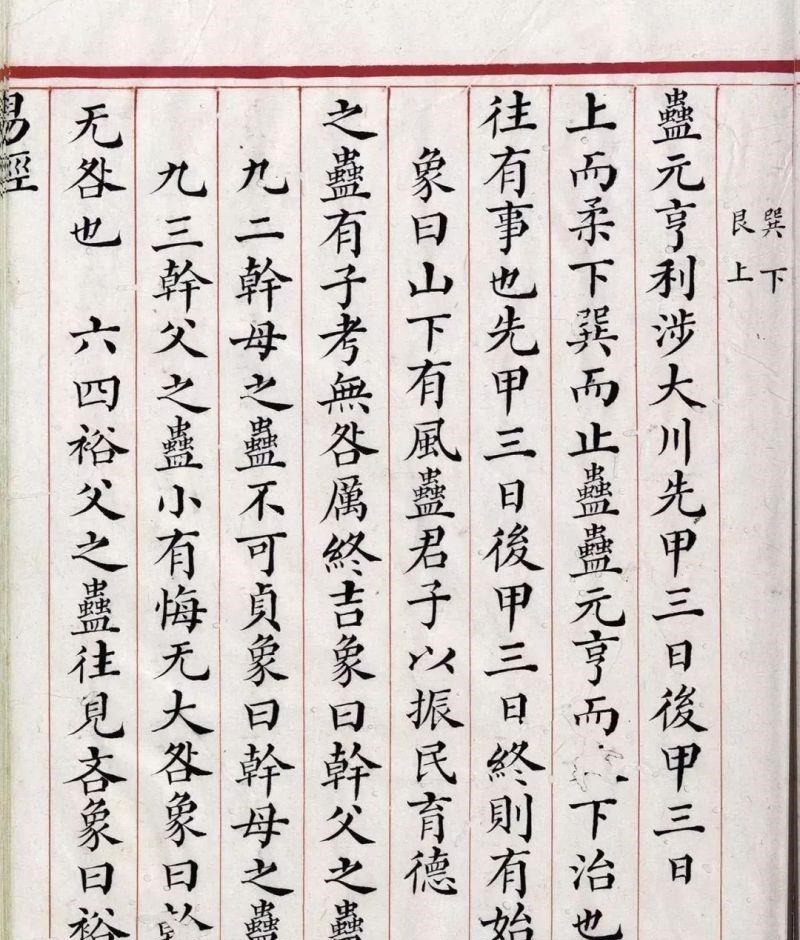 巽下
艮上
蠱元亨利涉大川先甲三日後甲三日
上而柔下巽而止蠱蠱元亨而下治也
往有事也先甲三日後甲三日終則有始
象曰山下有風蠱君子以振民育德
之蠱有子考無咎厲終吉象曰幹父之蠱
九二幹母之蠱不可貞象曰幹母之蠱
九三幹父之蠱小有悔无大咎象曰
无咎也 六四裕父之蠱往見吝象曰裕
易經